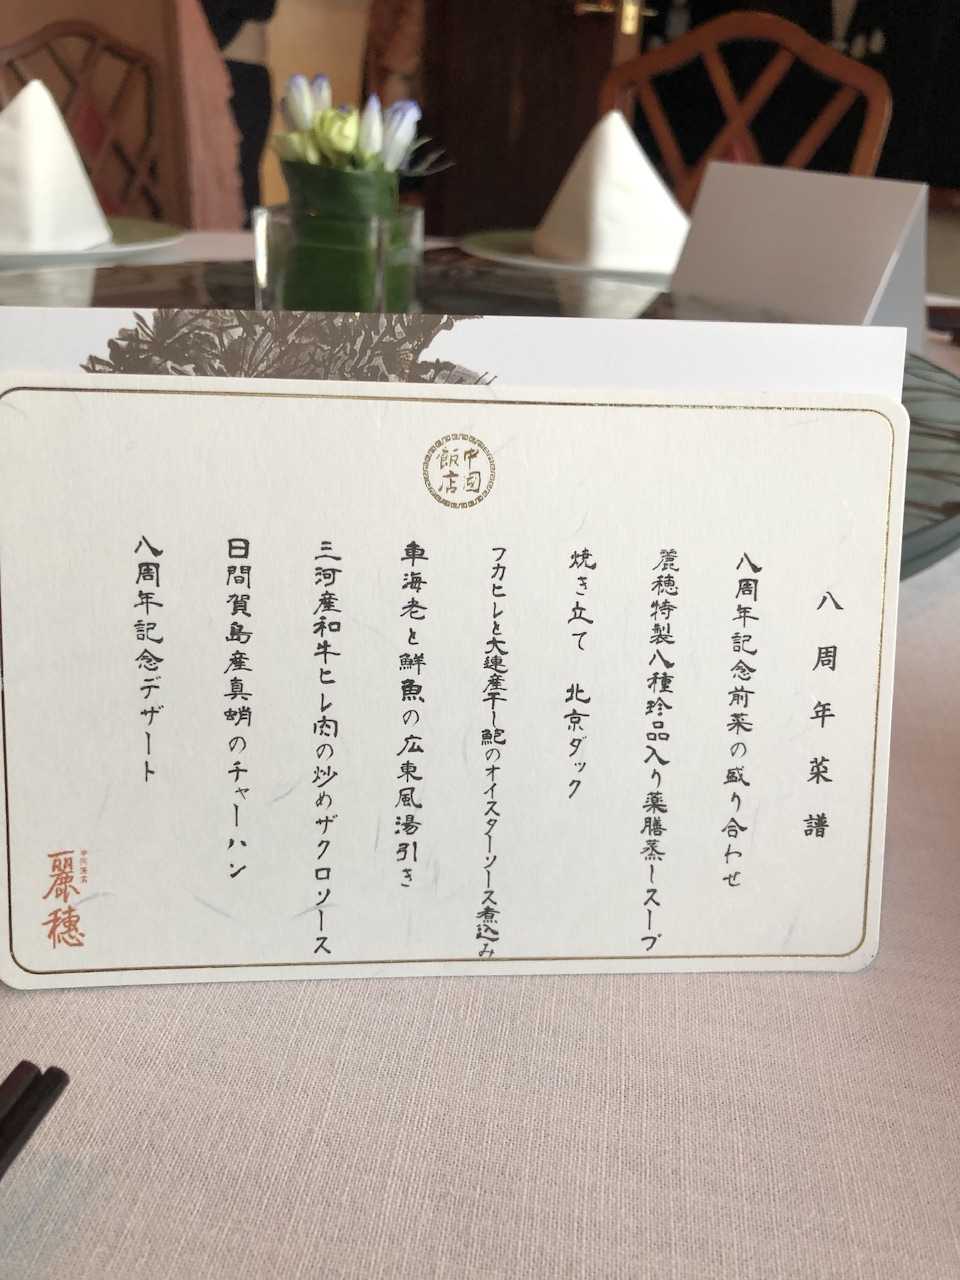 中国
飯店
八周年菜譜
八周年記念前菜の盛り合わせ
麗穂特製八種珍品入り薬膳蒸しスープ
焼き立て 北京ダック
フカヒレと大連産干し鮑のオイスターソース煮込み
車海老と鮮魚の広東風湯引き
三河産和牛ヒレ肉の炒めザクロソース
日間賀島産真蛸のチャーハン
八周年記念デザート
中国飯店
麗穂